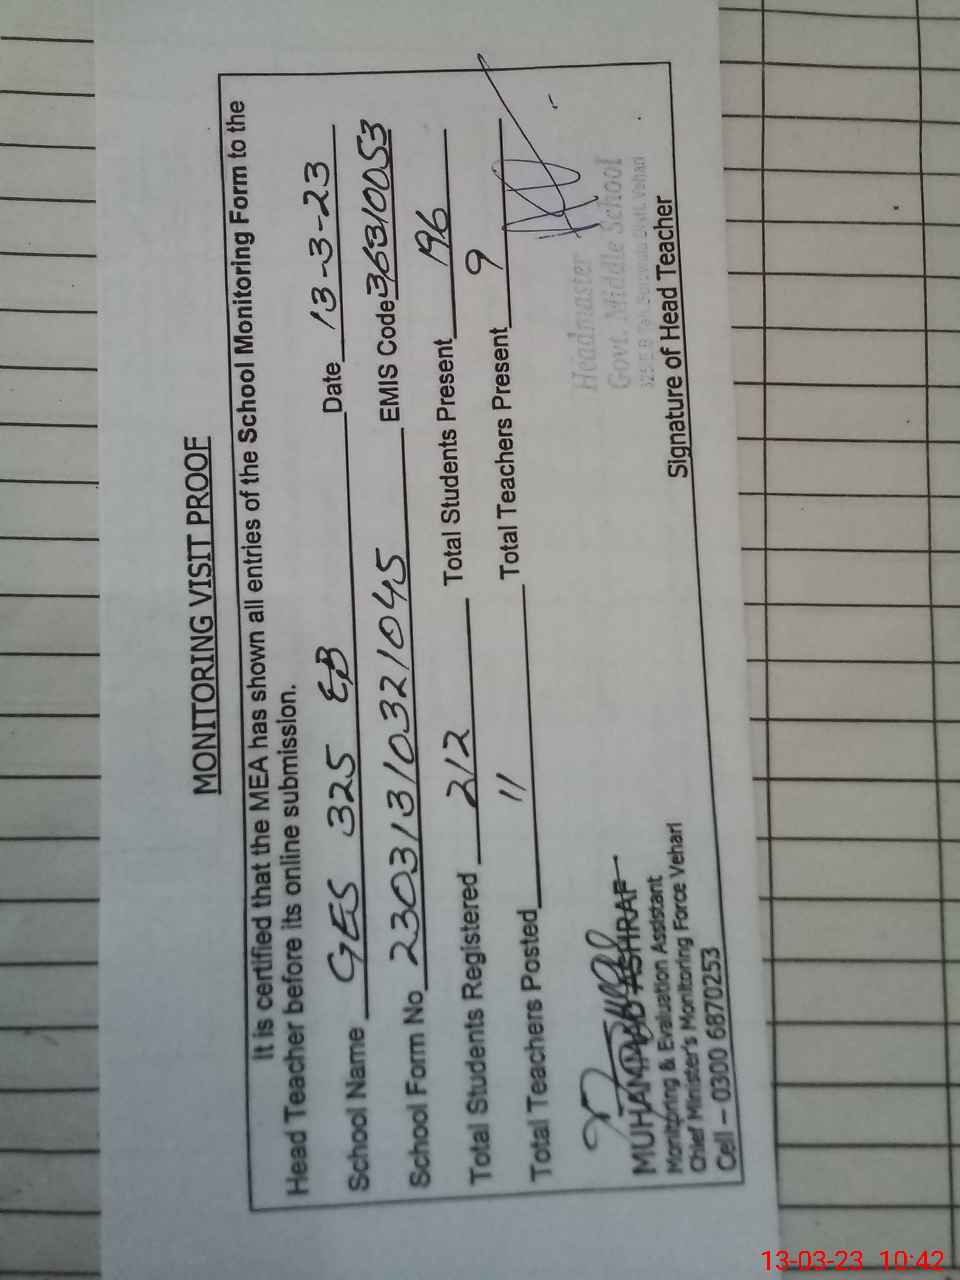 MONITORING VISIT PROOF
It is certified that the MEA has shown all entries of the School Monitoring Form to the
Head Teacher before its online submission.
School Name GES 325 EB Date 13-3-23
School Form No 23031310321045 EMIS Code 36310053
Total Students Registered 212 Total Students Present 196
Total Teachers Posted 11 Total Teachers Present 9
Headmaster
Govt. Middle School
MUHAMMAD ASHRAF
Monitoring & Evaluation Assistant
Chief Minister's Monitoring Force Vehari
Cell – 0300 6870253
Signature of Head Teacher
13-03-23 10:42